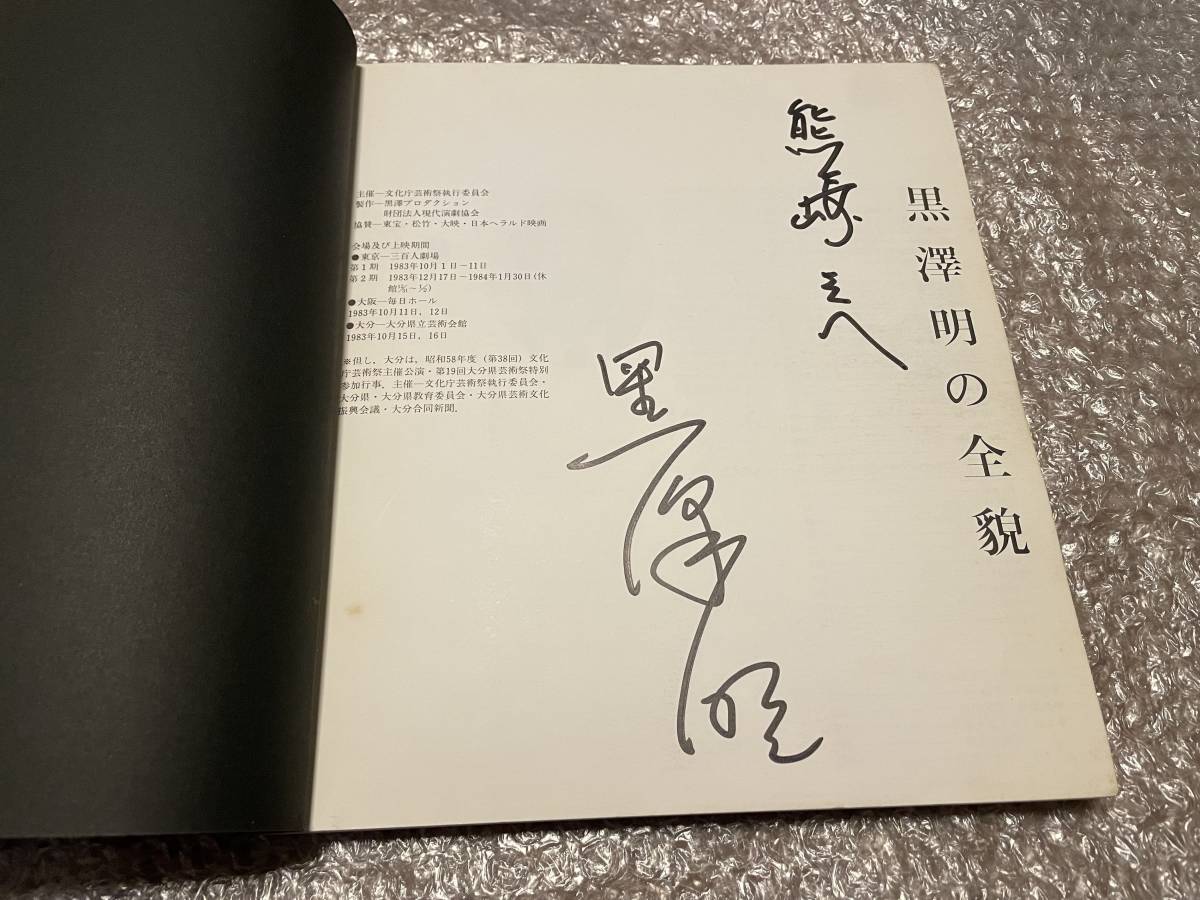 黒澤明の全貌
熊崎さんへ
黒澤明
主催―文化庁芸術祭執行委員会
製作―黒澤プロダクション
財団法人現代演劇協会
協賛―東宝・松竹・大映・日本ヘラルド映画
会場及び上映期間
●東京―三百人劇場
第1期 1983年10月1日―11日
第2期 1983年12月17日～1984年1月30日(休
●大阪―毎日ホール
1983年10月11日, 12日
●大分―大分県立芸術会館
1983年10月15日, 16日
※但し, 大分は, 昭和58年度 (第38回) 文化
庁芸術祭主催公演・第19回大分県芸術祭特別
参加行事. 主催―文化庁芸術祭執行委員会・
大分県・大分県教育委員会・大分県芸術文化
振興会議・大分合同新聞.